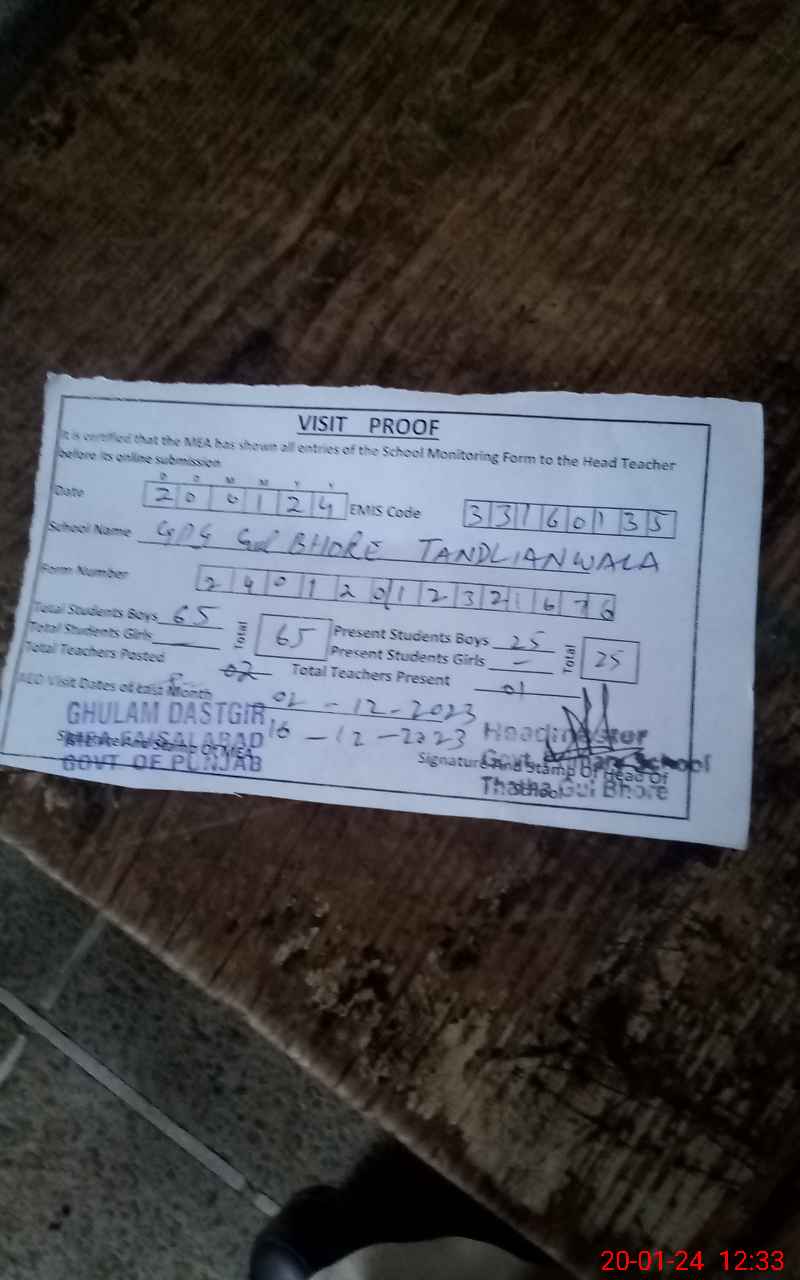 VISIT PROOF
It is certified that the MEA has shown all entries of the School Monitoring Form to the Head Teacher
before its online submission
D D M M Y Y
Date 20 01 24 EMIS Code 33160135
School Name GPS Gul BHORE TANDLIANWALA
Form Number 2401201232
Total Students Boys 65 Total 65 Present Students Boys 25 Total 25
Total Students Girls — Present Students Girls —
Total Teachers Posted 02 Total Teachers Present 01
AEO Visit Dates of Last Month 02-12-2023
16-12-2023
GHULAM DASTGIR
MEA FAISALABAD
GOVT OF PUNJAB
Signature And Stamp Of MEA
Headmaster
Govt. Primary School
Thatha Gul Bhore
Signature And Stamp Of Head Of
School
20-01-24 12:33